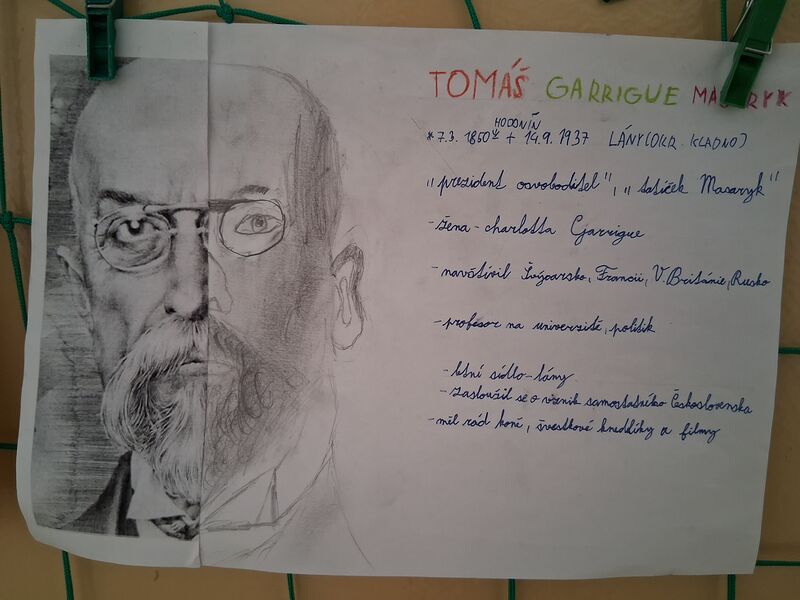 TOMÁŠ GARRIGUE MASARYK
* 7.3. 1850 v HODONÍN + 14.9. 1937 LÁNY (OKR. KLADNO)
"prezident osvoboditel", "tatíček Masaryk"
- žena - charlotta Garrigue
- navštívil Švýcarsko, Francii, V. Británie, Rusko
- profesor na univerzitě, politik
- letní sídlo - lány
- zasloužil se o vznik samostatného Československa
- měl rád koně, švestkové knedlíky a filmy